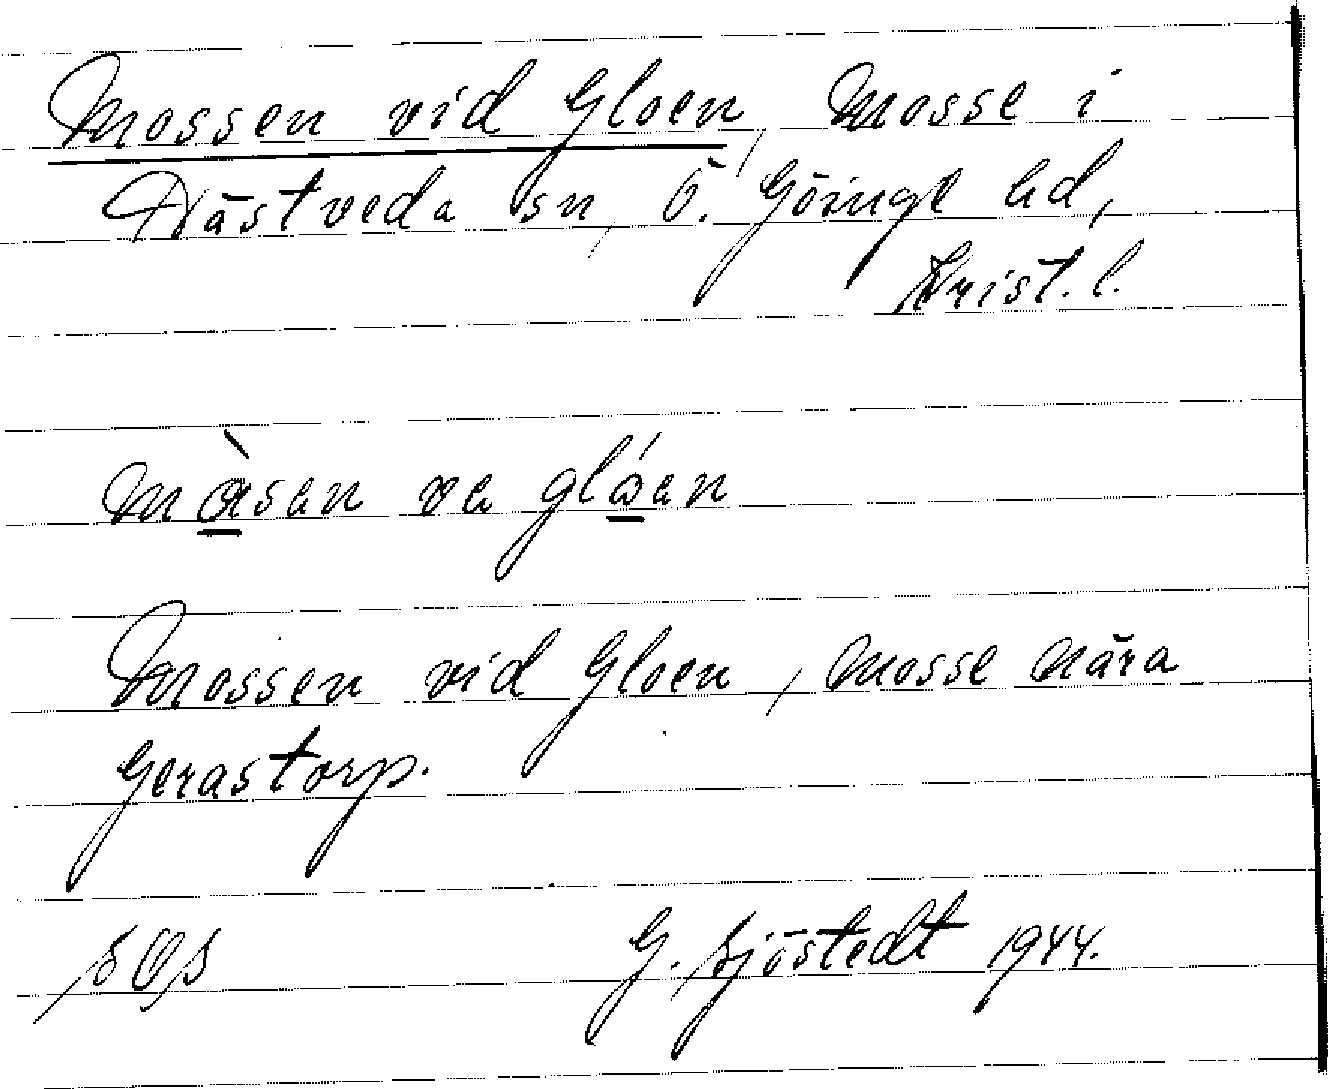 Mossen vid Gloen, Mosse i
Nästveda sn, Ö. Göinge hd,
Krist. l.
mɑ̲̀sen ve gló̲en
Mossen vid Gloen, Mosse nära
Gerastorp.
SOS G. Sjöstedt 1944.